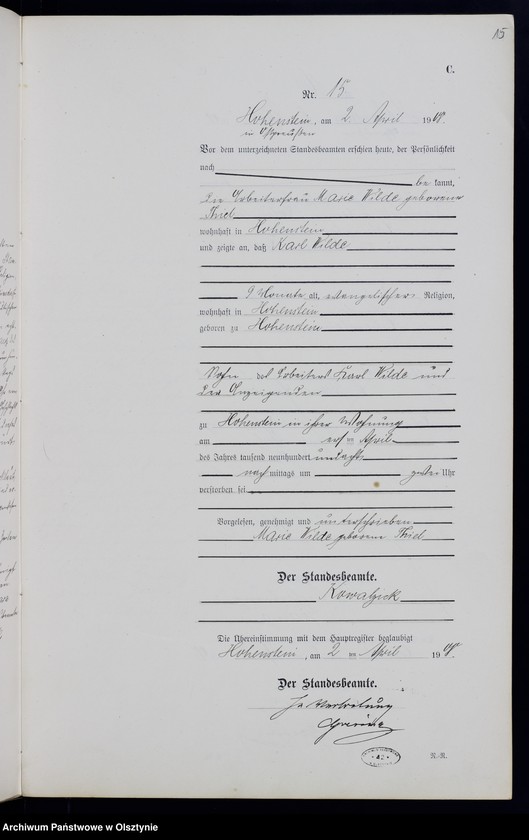 15
C.
Nr. 15
Hohenstein, am 2. April 1908.
in Ostpreußen
Vor dem unterzeichneten Standesbeamten erschien heute, der Persönlichkeit
nach
be kannt,
die Arbeiterfrau Marie Wilde geborene
Thiel
wohnhaft in Hohenstein
und zeigte an, daß Karl Wilde
9 Monate alt, evangelischer Religion,
wohnhaft in Hohenstein
geboren zu Hohenstein
Sohn des Arbeiters Karl Wilde und
der Anzeigenden
zu Hohenstein in ihrer Wohnung
am ersten April
des Jahres tausend neunhundert und acht
nach mittags um Uhr
verstorben sei
Vorgelesen, genehmigt und unterschrieben
Marie Wilde geborene Thiel
Der Standesbeamte.
Kowalzick
Die Übereinstimmung mit dem Hauptregister beglaubigt
Hohenstein, am 2 ten April 1908.
Der Standesbeamte.
In Vertretung
R.-R.
Archiwum Państwowe w Olsztynie